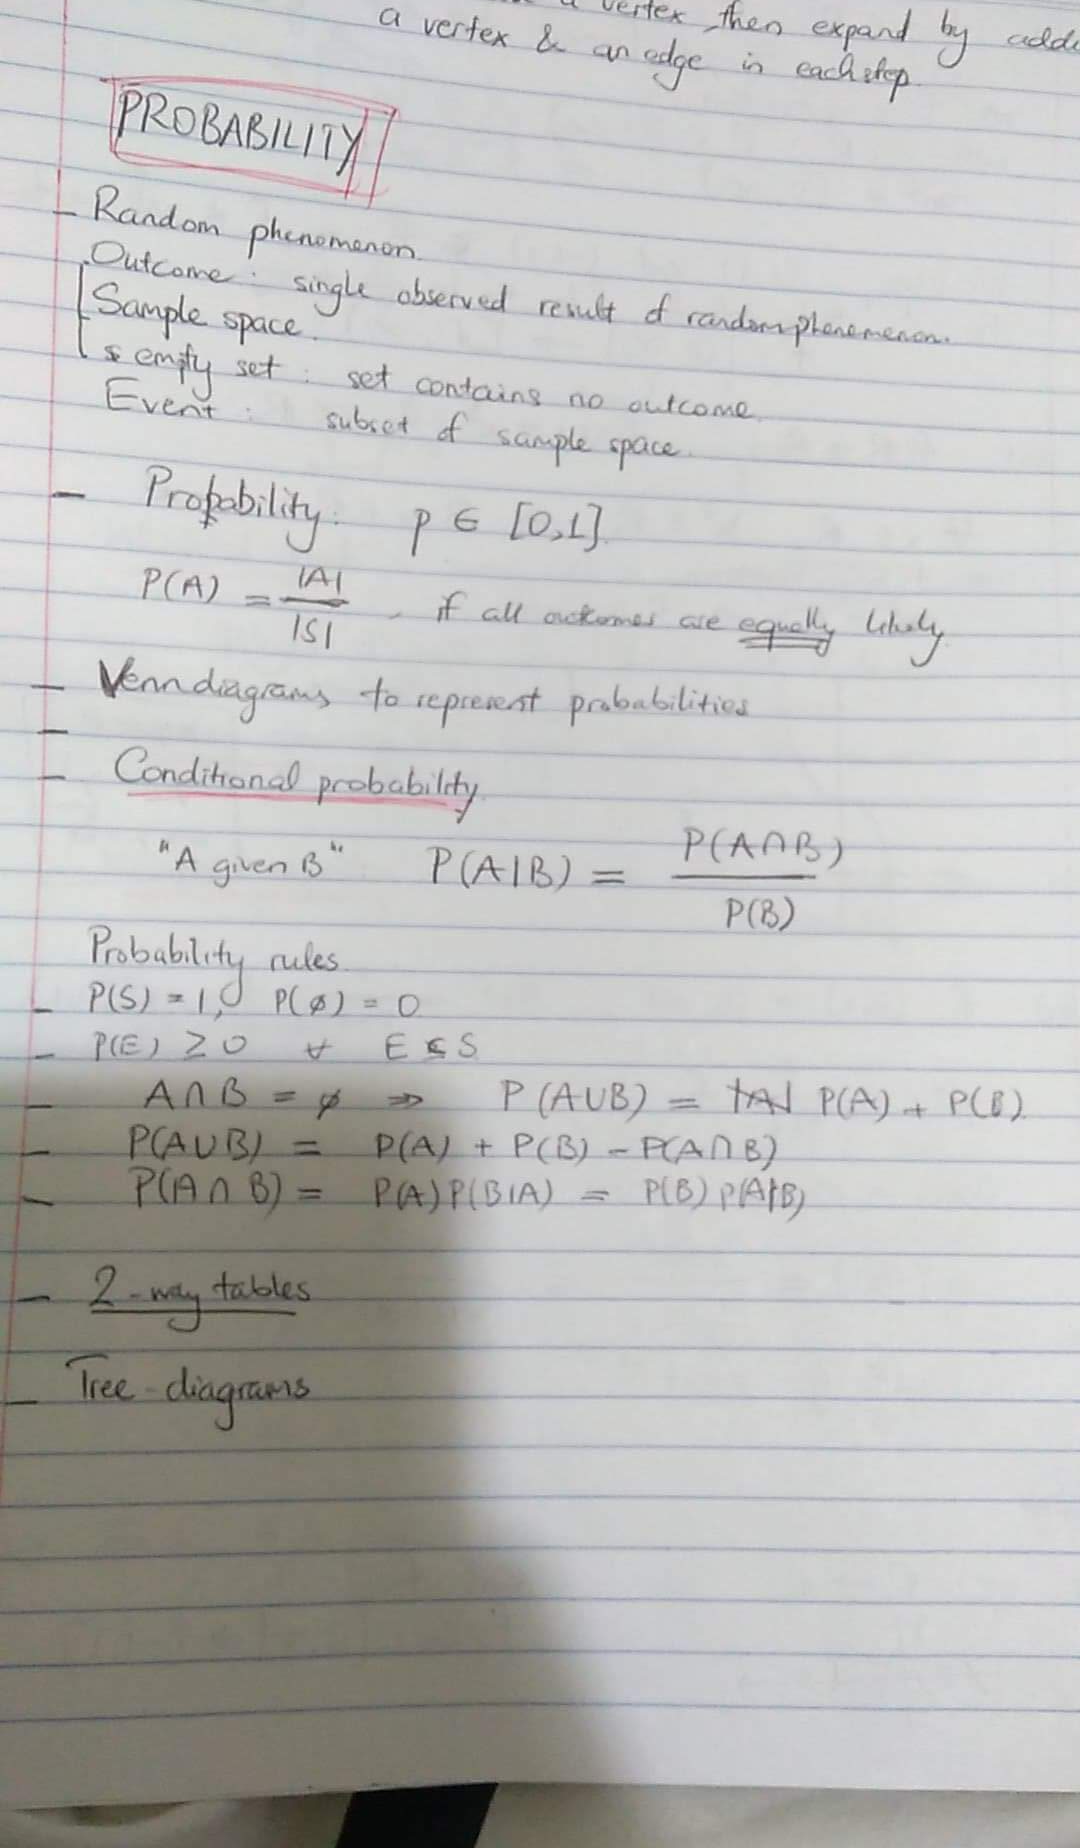 vertex, then expand by
a vertex & an edge in each step.
PROBABILITY
- Random phenomenon.
Outcome : single observed result of random phenomenon.
Sample space.
& empty set : set contains no outcome.
Event : subset of sample space.
- Probability : p ∈ [0,1].
P(A) = |A| / |S| , if all outcomes are equally likely.
- Venn diagrams to represent probabilities
-
- Conditional probability.
"A given B" P(A|B) = P(A∩B) / P(B)
Probability rules.
- P(S) = 1, P(ø) = 0
- P(E) ≥ 0 ∀ E ⊆ S
- A∩B = ø ⇒ P(A∪B) = P(A) + P(B).
- P(A∪B) = P(A) + P(B) - P(A∩B)
- P(A∩B) = P(A)P(B|A) = P(B)P(A|B)
- 2-way tables
- Tree-diagrams